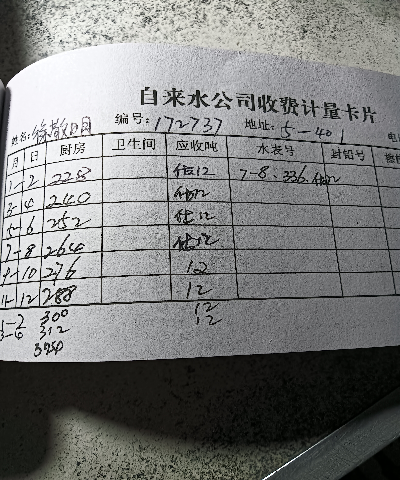 自来水公司收费计量卡片
姓名: 编号:172737 地址:5-401 电
月 日 厨房 卫生间 应收吨 水表号 封铅号
1-2 228 估12 7-8.336.估12
3-4 240 估12
5-6 252 估12
7-8 264 估12
9-10 276 12
11-12 288 12
1-2 300 12
312 12